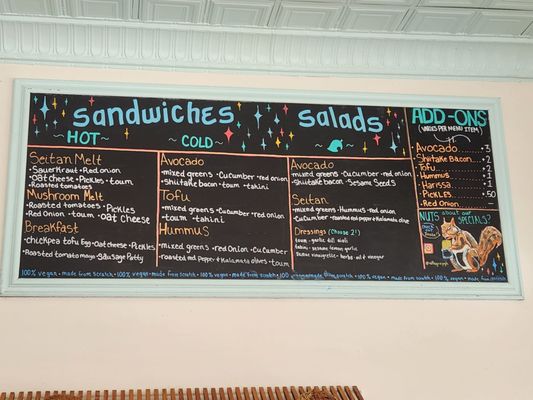 Sandwiches
~HOT~
~COLD~
Seitan Melt
• Sauerkraut • Red onion
• Oat cheese • Pickles • toum
• Roasted tomatoes
Mushroom Melt
• Roasted tomatoes • Pickles
• Red Onion • toum • oat cheese
Breakfast
• chickpea tofu Egg • oat cheese • Pickles
• Roasted tomatoes • mayo • Sausage Patty
Avocado
• mixed greens • Cucumber • red onion
• Shiitake bacon • toum • tahini
Tofu
• mixed greens • Cucumber • red onion
• toum • tahini
Hummus
• mixed greens • red onion • Cucumber
• roasted red pepper • Kalamata olives • toum
Salads
Avocado
• mixed greens • Cucumber • red onion
• Shiitake bacon • Sesame Seeds
Seitan
• mixed greens • Hummus • red onion
• Cucumber • roasted red pepper • Kalamata olive
Dressings (Choose 2!)
toum - garlic dill aioli
tahini - sesame lemon garlic
vinaigrette - herbs • oil • vinegar
ADD-ONS
(VARIES PER MENU ITEM)
• Avocado 3
• Shiitake Bacon 2
• Tofu 2
• Hummus 1
• Harissa 1
• Pickles .50
• Red Onion
NUTS about our
SPECIALS?
100% vegan • made from scratch • 100% vegan • made from scratch • 100% vegan • made from scratch • 100% vegan • made from scratch • 100% vegan • made from scratch